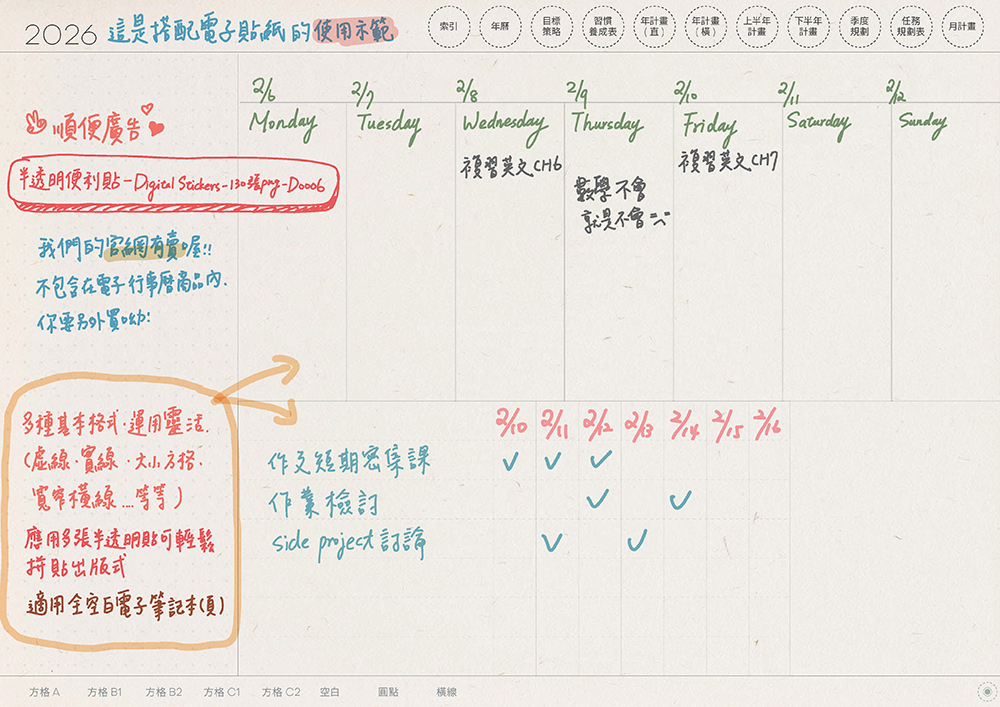 2026 這是搭配電子貼紙的使用示範
索引
年曆
目標
策略
習慣
養成表
年計畫
(直)
年計畫
(橫)
上半年
計畫
下半年
計畫
季度
規劃
任務
規劃表
月計畫
順便廣告
半透明便利貼-Digital Stickers-130張png-D0006
我們的官網有賣喔!!
不包含在電子行事曆商品內.
你要另外買呦!
2/6 2/7 2/8 2/9 2/10 2/11 2/12
Monday Tuesday Wednesday Thursday Friday Saturday Sunday
複習英文CH6
數學不會
就是不會
複習英文CH7
多種基本格式·運用靈活.
(虛線·實線·大小方格.
寬窄橫線....等等)
應用多張半透明貼可輕鬆
拼貼出版式
適用全空白電子筆記本(頁)
2/10 2/11 2/12 2/13 2/14 2/15 2/16
作文短期密集課 ✓ ✓ ✓
作業檢討 ✓ ✓
side project 討論 ✓ ✓
方格 A 方格 B1 方格 B2 方格 C1 方格 C2 空白 圓點 橫線